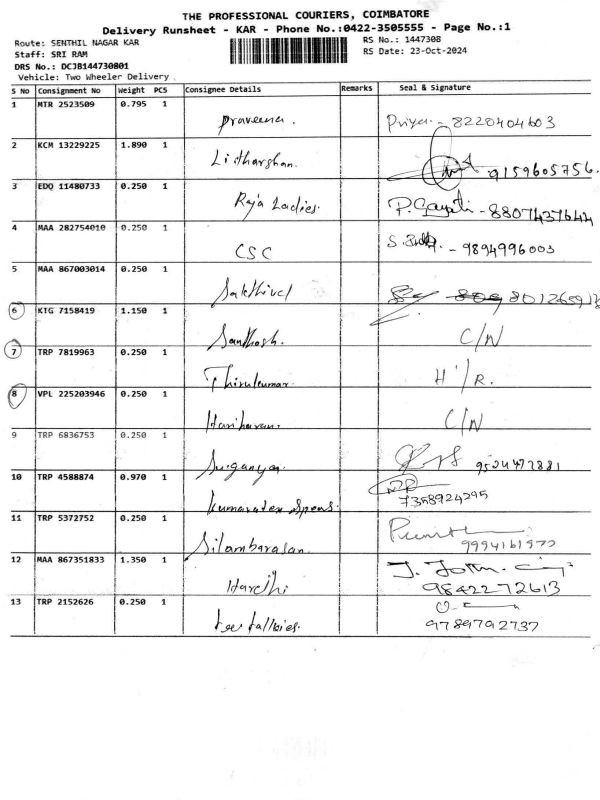 THE PROFESSIONAL COURIERS, COIMBATORE
Delivery Runsheet - KAR - Phone No.:0422-3505555 - Page No.:1
Route: SENTHIL NAGAR KAR RS No.: 1447308
Staff: SRI RAM RS Date: 23-Oct-2024
DRS No.: DCJB144730801
Vehicle: Two Wheeler Delivery
S No Consignment No Weight PCS Consignee Details Remarks Seal & Signature
1 MTR 2523509 0.795 1
Praveena. Priya - 8220404603
2 KCM 13229225 1.890 1
Lidharshan. 9159605756.
3 EDQ 11480733 0.250 1
Raja Ladies. P. Gayatri - 8807437644
4 MAA 282754010 0.250 1
CSC - 9894996003
5 MAA 867003014 0.250 1
Sakthivel
6 KTG 7158419 1.150 1
Santhosh. C/N
7 TRP 7819963 0.250 1
Thirukumar. H/R.
8 VPL 225203946 0.250 1
Hariharan. C/N
9 TRP 6836753 0.250 1
Suganya. 9524472881
10 TRP 4588874 0.970 1
7358924295
11 TRP 5372752 0.250 1
Silambarasan.
12 MAA 867351833 1.350 1
9842272613
13 TRP 2152626 0.250 1
9789792737